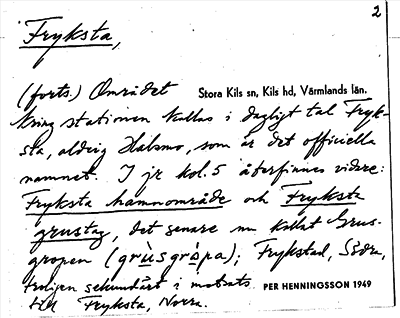 2
Fryksta,
(forts.) Området Stora Kils sn, Kils hd, Värmlands län.
kring stationen kallas i dagligt tal Fryk-
sta, aldrig Hälsmo, som är det officiella
namnet. I jr kol. 5 återfinnes vidare:
Fryksta hamnområde och Fryksta
grustag, det senare nu kallat Grus-
gropen (grùsgrópa); Frykstad, Södra,
troligen sekundärt i motsats PER HENNINGSSON 1949
till Fryksta, Norra.